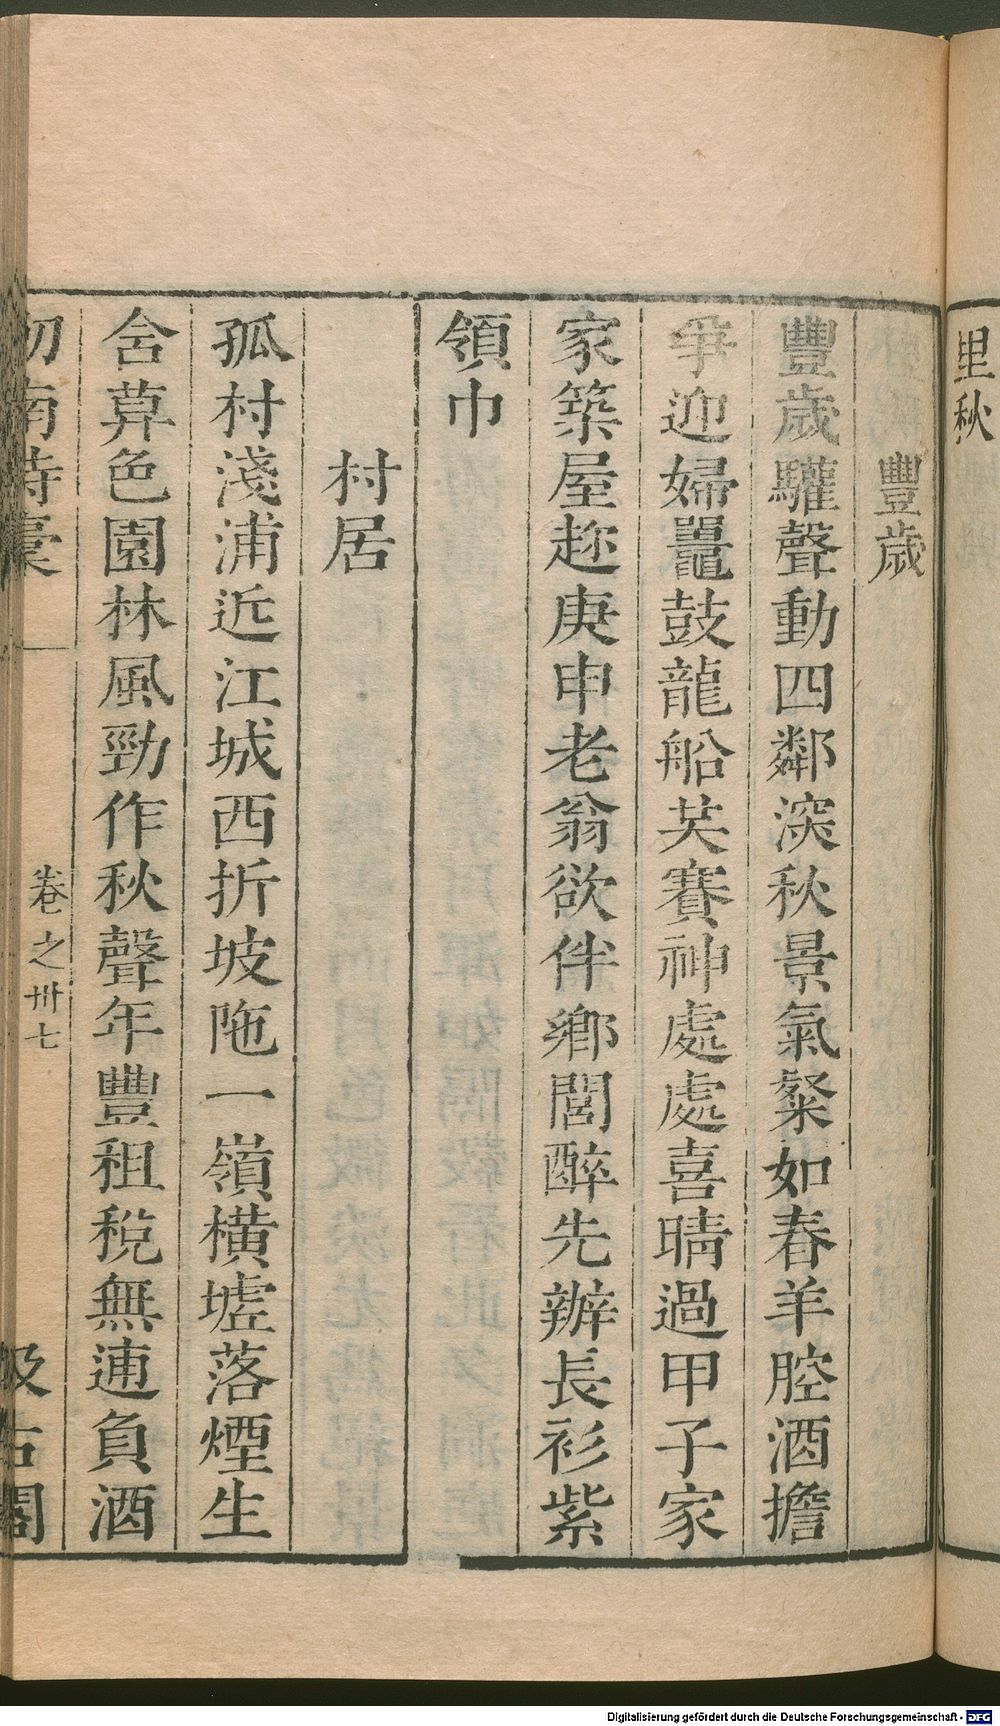 里秋
豐歲
豐歲驩聲動四鄰深秋景氣粲如春羊腔酒擔
爭迎婦鼉鼓龍船共賽神處處喜晴過甲子家
家築屋趂庚申老翁欲伴鄉閭醉先辦長衫紫
領巾
村居
孤村淺浦近江城西折坡陁一嶺橫墟落煙生
含莫色園林風勁作秋聲年豐租稅無逋負酒
劒南詩稾
卷之卅七
汲古閣
Digitalisierung gefördert durch die Deutsche Forschungsgemeinschaft - DFG